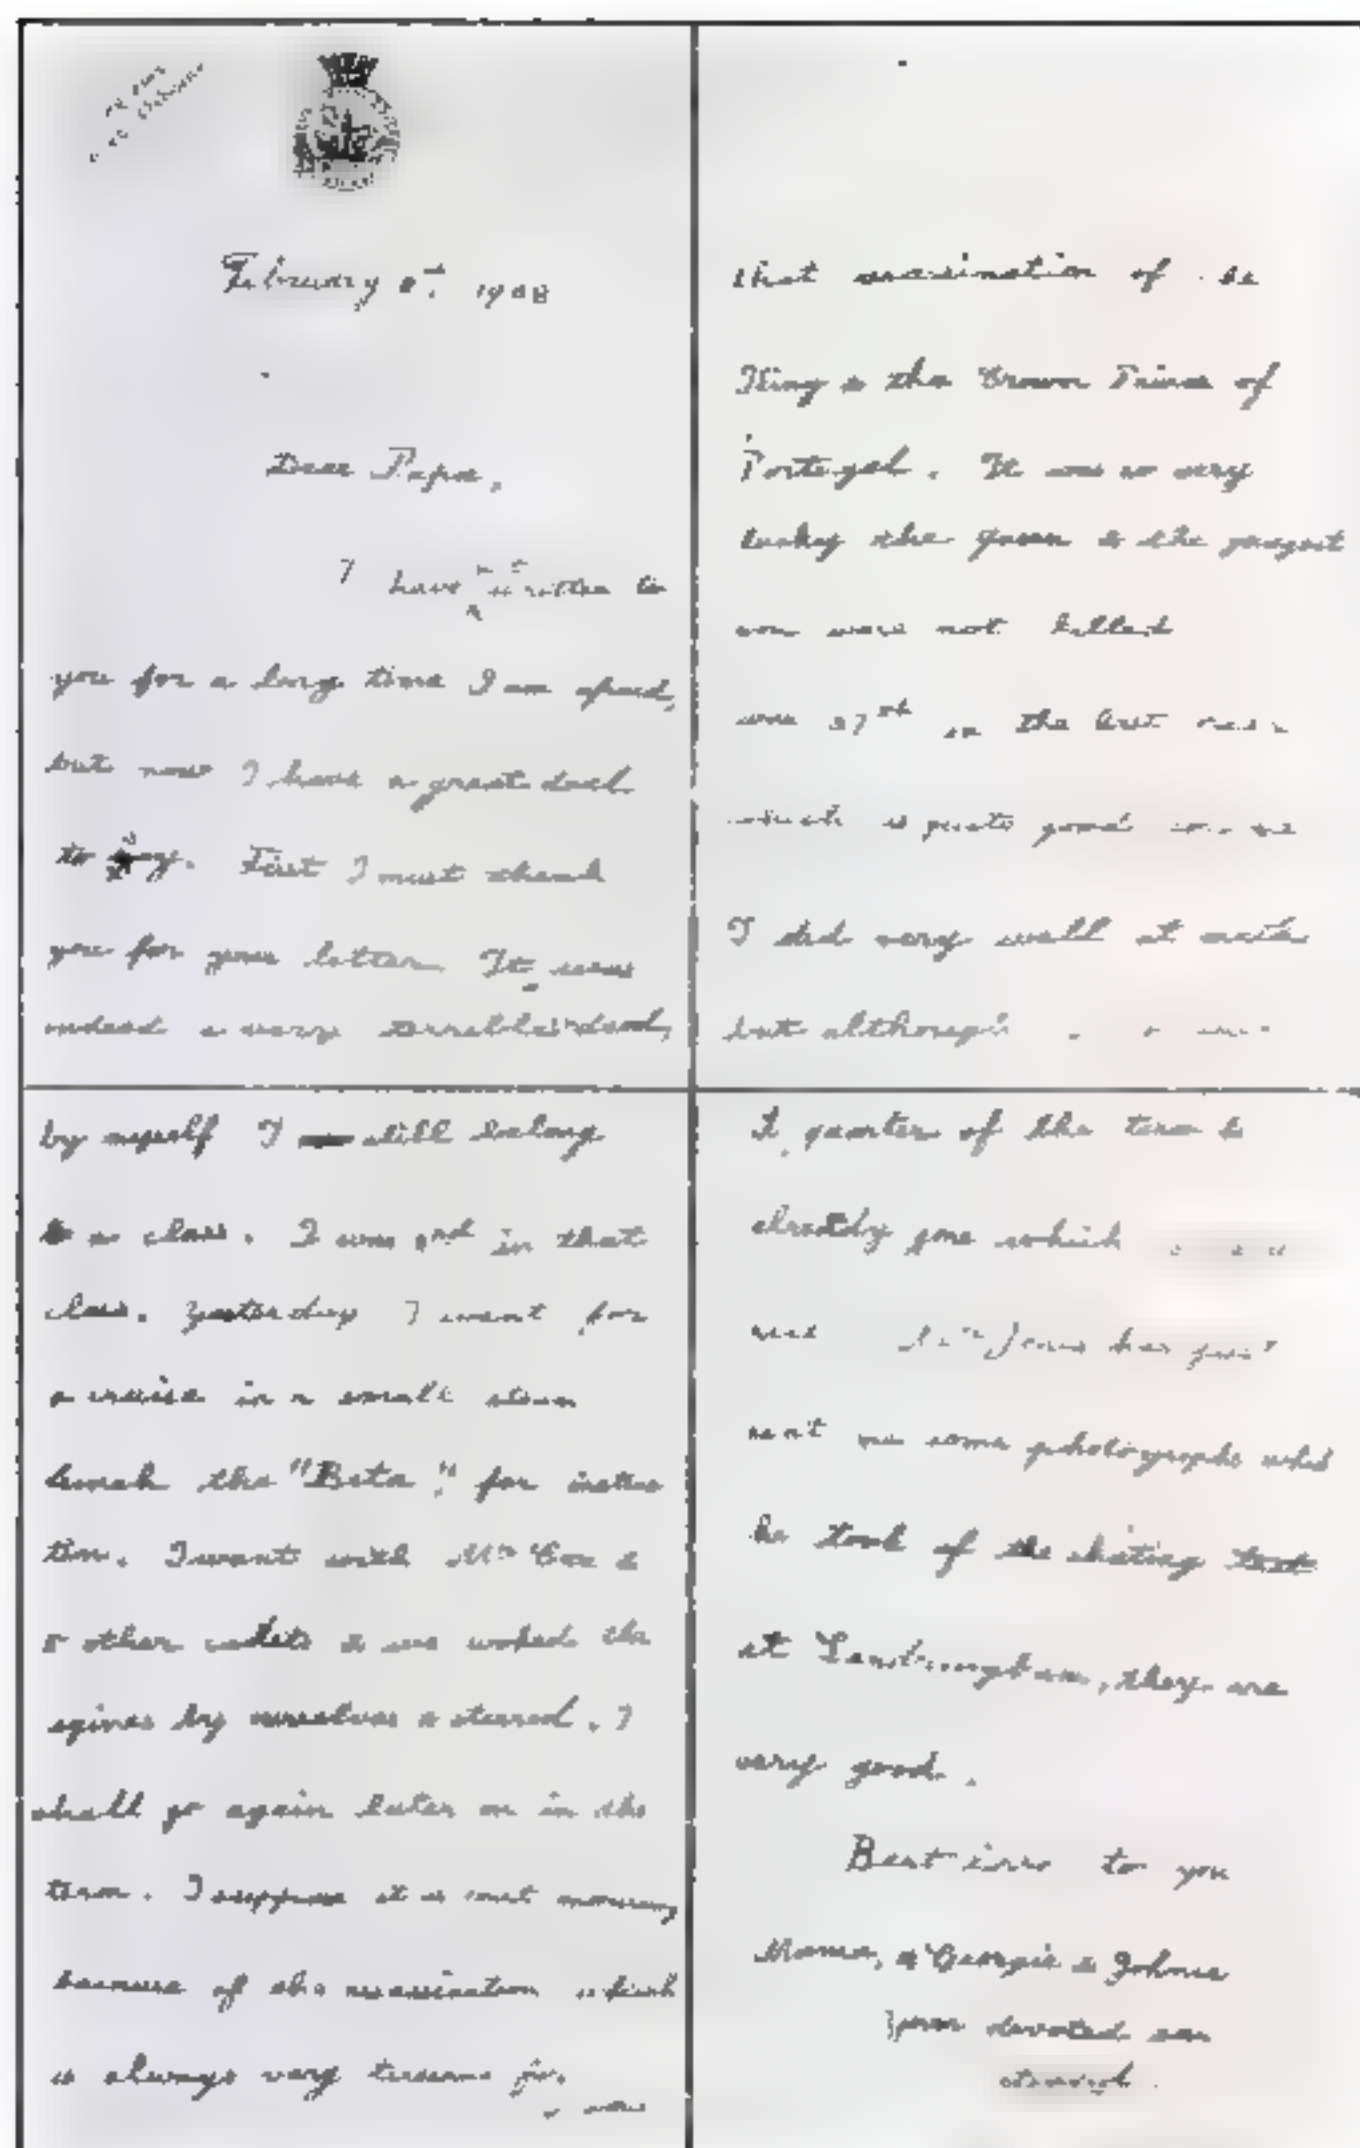 February 8th 1908
Dear Papa,
I have not written to
you for a long time I am afraid,
but now I have a great deal
to say. First I must thank
you for your letter. It was
indeed a very terrible deed,
that assasination of
King & the Crown Prince of
Portugal. It was so very
lucky the Queen & the present
were not killed
was 37th in the last
which is quite good
I did very well at
but although
by myself I still belong
to a class. I was in that
class. Yesterday I went for
a cruise in a small steam
the "Beta" for
I went with Mr Cox &
other cadets & we worked the
by ourselves & steered. I
shall go again later on in the
term. I suppose it is
because of the assasination which
is always very tiresome for
quarter of the term is
already gone which
Jones has just
sent me some photographs which
he took of the skating
at Sandringham, they are
very good.
Best love to you
Mama, & Georgie & Johnnie
Your devoted son